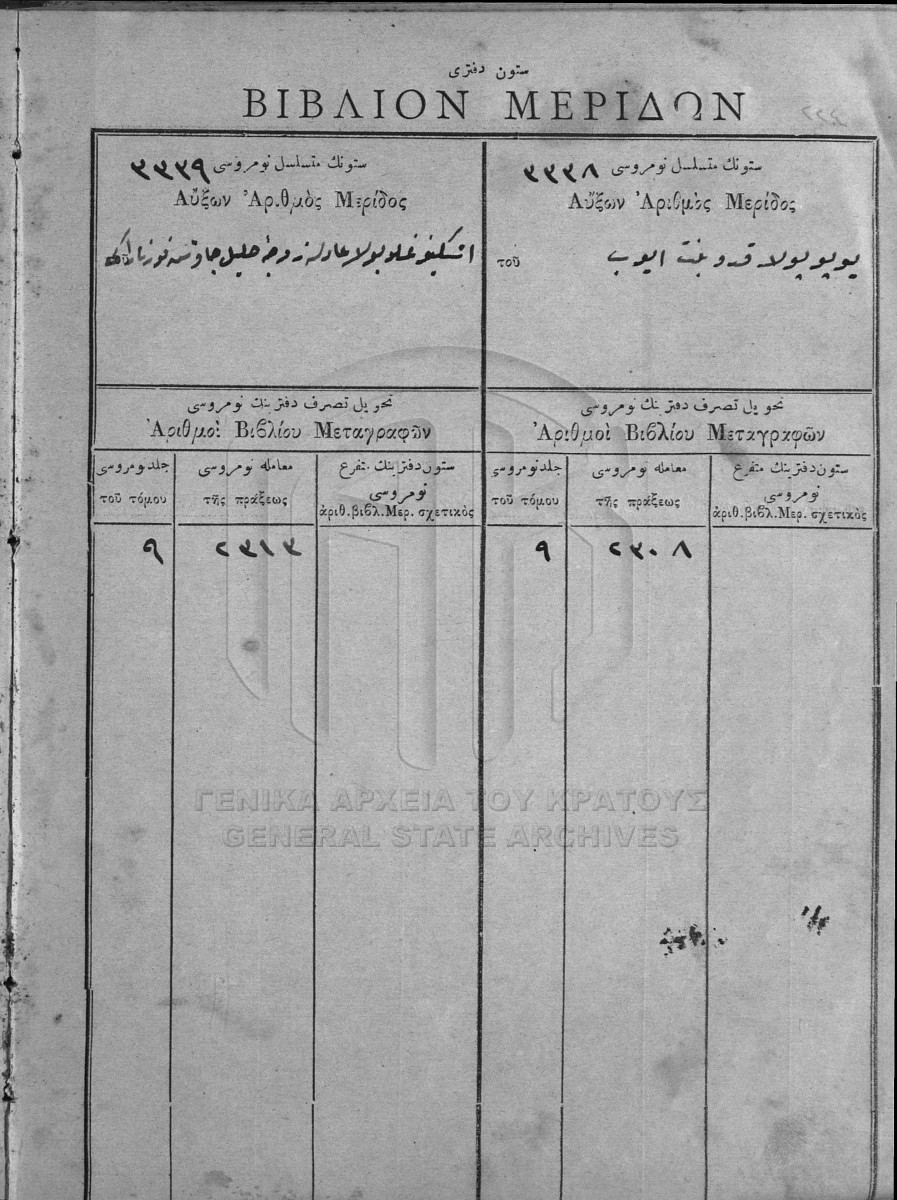 ستون دفتری
ΒΙΒΛΙΟΝ ΜΕΡΙΔΩΝ
ستونك متسلسل نومروسی ٣٣٣٨
Αὔξων Ἀριθμὸς Μερίδος
τοῦ
بنت ایوب
تحویل تصرف دفترینك نومروسی
Ἀριθμοὶ Βιβλίου Μεταγραφῶν
ستون دفترینك متفرع نومروسی
ἀριθ. βιβλ. Μερ. σχετικὸς
معامله نومروسی
τῆς πράξεως
جلد نومروسی
τοῦ τόμου
٢٣٠٨
٩
ستونك متسلسل نومروسی ٣٣٣٩
Αὔξων Ἀριθμὸς Μερίδος
زوجهٔ خلیل
تحویل تصرف دفترینك نومروسی
Ἀριθμοὶ Βιβλίου Μεταγραφῶν
ستون دفترینك متفرع نومروسی
ἀριθ. βιβλ. Μερ. σχετικὸς
معامله نومروسی
τῆς πράξεως
جلد نومروسی
τοῦ τόμου
٢٣١٣
٩
ΓΕΝΙΚΑ ΑΡΧΕΙΑ ΤΟΥ ΚΡΑΤΟΥΣ
GENERAL STATE ARCHIVES